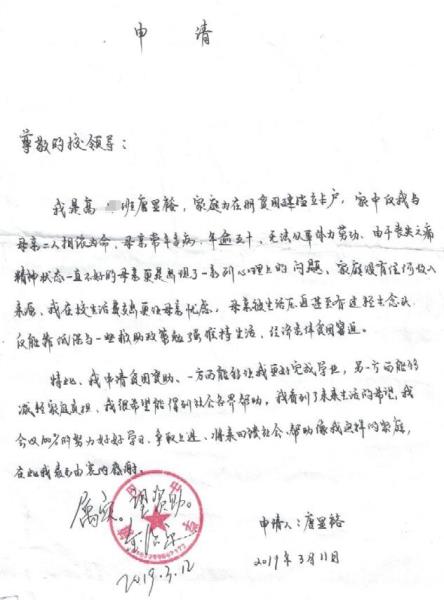 申 请
尊敬的校领导：
我是高 班唐里裕，家庭为在册贫困建档立卡户，家中仅我与
母亲二人相依为命，母亲常年多病，年逾五十，无法从事体力劳动。由于丧夫之痛
精神状态一直不好的母亲更是出现了一系列心理上的问题，家庭没有任何收入
来源，我在校生活费支出更让母亲忧虑，母亲被生活压迫甚至有过轻生念头，
仅能靠低保与一些救助政策勉强维持生活，经济条件贫困窘迫。
特此，我申请贫困资助、一方面能够让我更好完成学业，另一方面能够
减轻家庭负担，我很希望能得到社会各界帮助，我看到了未来生活的希望，我
会以加倍的努力好好学习，争取上进，将来回馈社会，帮助像我这样的家庭，
在此我表示由衷的感谢。
属实。望资助。
申请人：唐里裕
2019.3.12
2019年3月11日